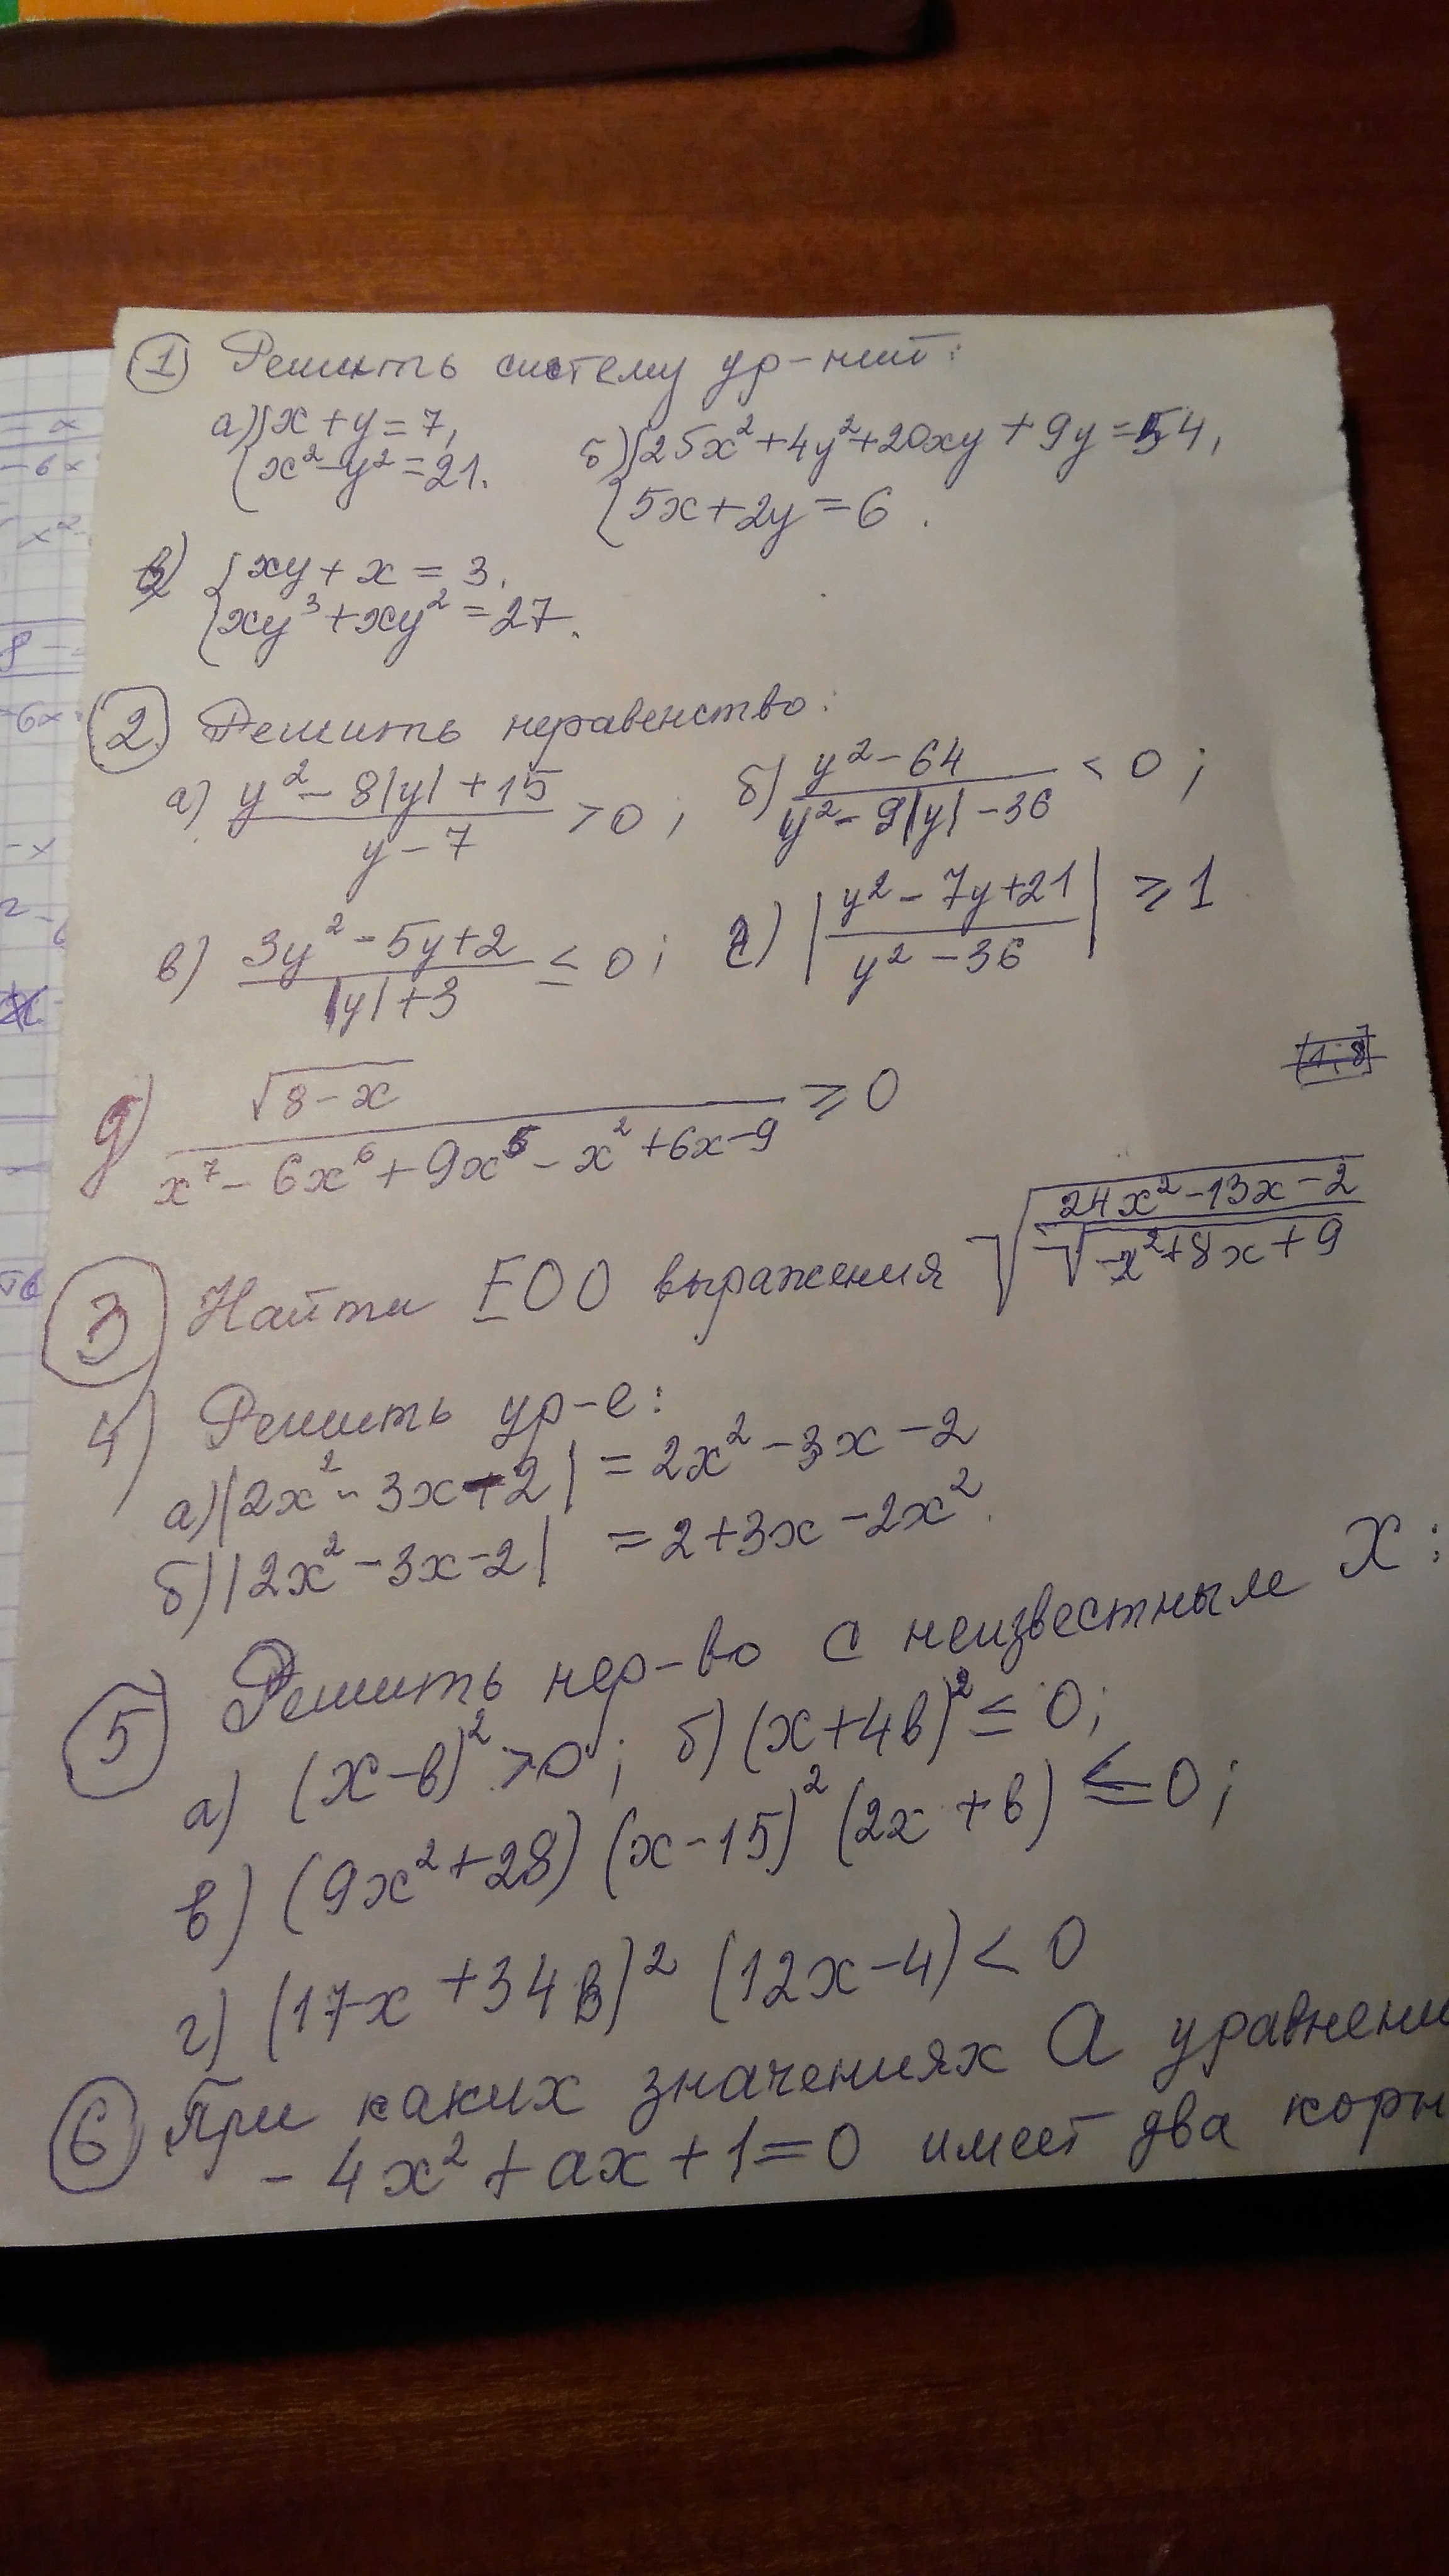 1 Решить систему ур-ний:
а) { x + y = 7,
x² - y² = 21.
б) { 25x² + 4y² + 20xy + 9y = 54,
5x + 2y = 6.
в) { xy + x = 3,
xy³ + xy² = 27.
2. Решить неравенство:
а) (y² - 8|y| + 15)/(y - 7) > 0; б) (y² - 64)/(y² - 9|y| - 36) < 0;
в) (3y² - 5y + 2)/(|y| + 3) ≤ 0; г) |(y² - 7y + 21)/(y² - 36)| ≥ 1
д) √(8 - x)/(x⁷ - 6x⁶ + 9x⁵ - x² + 6x - 9) ≥ 0
3 Найти ЕОО выражения √((24x² - 13x - 2)/√(-x² + 8x + 9))
4) Решить ур-е:
а) |2x² - 3x - 2| = 2x² - 3x - 2
б) |2x² - 3x - 2| = 2 + 3x - 2x².
5 Решить нер-во с неизвестным X:
а) (x - в)² > 0; б) (x + 4в)² ≤ 0;
в) (9x² + 28) (x - 15)² (2x + в) ≤ 0;
г) (17x + 34в)² (12x - 4) < 0
6 При каких значениях а уравнени
- 4x² + ax + 1 = 0 имеет два корн